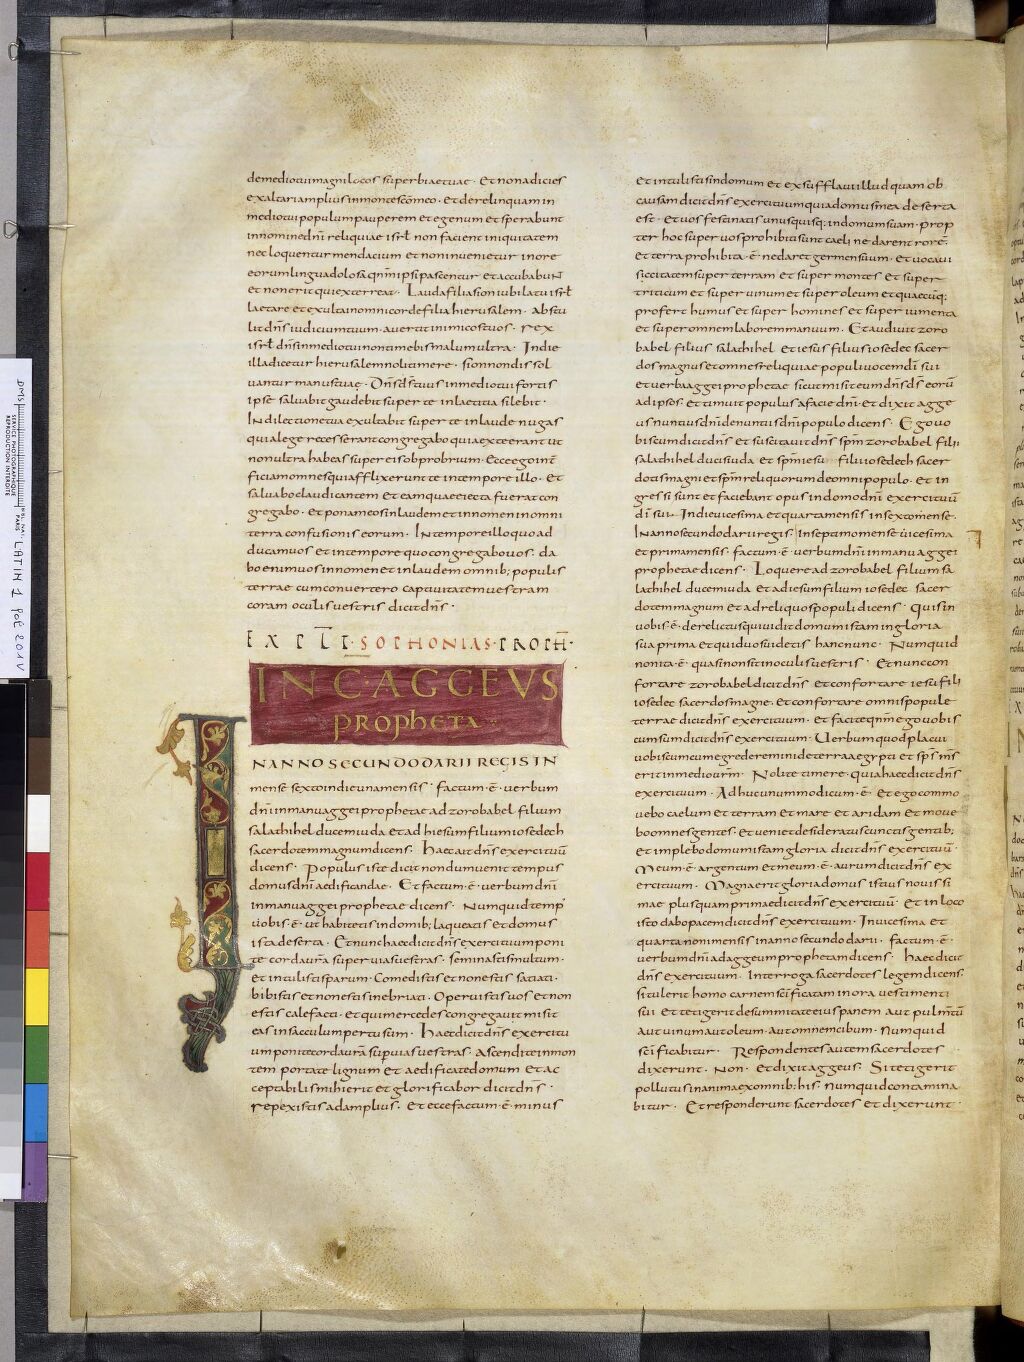 demediotuimagniloquos superbiaetuae · Etnonadicies
exaltariampliusinmontesc̄omeo · etderelinquam in
mediotuipopulumpauperem etegenum etsperabunt
innominedn̄i reliquiae isrl̄ non facient iniquitatem
nec loquentur mendacium et noninvenietur inore
eorum linguadolosa qn̄mipsipascentur etaccubabunt
et nonerit quiexterreat · Laudafiliasion iubilatuisrl̄
laetare etexultainomnicordefilia hierusalem · abstu
lit dn̄s iudiciumtuum · avertit inimicostuos · rex
isrl̄ dn̄sinmediotuinontimebismalumultra · Indie
illadicetur hierusalemnolitimere · sionnondissol
vantur manustuae · Dn̄sd̄stuus inmediotui fortis
ipse salvabit gaudebit super te inlaetitia silebit ·
Indilectionetua exultabit super te inlaude nugas
quialege recesserantcongregabo quiaexteerant ut
nonultra habeas super eisobprobrium · Ecceegoint̄
ficiamomnesquiafflixerunt te intempore illo · Et
salvaboclaudicantem et eamquaeeiecta fuerat con
gregabo · et ponameosinlaudemetinnomeninomni
terra confusionis eorum · Intempore illo quo ad
ducamvos et intempore quocongregabovos · da
boenimvosinnomenetinlaudem omnib; populis
terrae cumconvertero captivitatemvestram
coram oculis vestris dicitdn̄s ·
EXPLT · SOPHONIAS · PROPH̄ ·
INC · AGGEVS
PROPHETA
IN ANNO SECUNDO DARII REGIS IN
mense sextoindieunamensis · factum · ē · verbum
dn̄i inmanuaggeiprophetae ad zorobabel filium
salathihel ducemiuda et ad hiesumfiliumiosedech
sacerdotemmagnumdicens · Haecaitdn̄s exercituū
dicens · Populus iste dicit nondumvenit tempus
domusdn̄i aedificandae · Et factum · ē · verbumdn̄i
inmanuaggei prophetae dicens · Numquidtemp'
vobis · ē · uthabitetis indomib; laqueatis et domus
ista deserta · Etnunchaecdicitdn̄s exercituumponi
te cordavr̄a super viasvestras · seminastismultum ·
et intulistisparum · Comedistis et nonestis satiati ·
bibistis et nonestisinebriati · Operuistisvos et non
estis calefacti · et quimercedes congregavit misit
eas insacculumpertusum · Haecdicitdn̄s exercitu
umponitecordavr̄a superviasvestras · Ascenditeinmon
tem portate lignum et aedificatedomum et ac
ceptabilismihierit et glorificabor dicitdn̄s ·
respexistis adamplius · Et eccefactum · ē · minus
et intulistisindomum et exsufflaviillud quam ob
causam dicitdn̄s exercituumquiadomusmea deserta
est · Et vos festinatis unusquisq; indomumsuam · prop
ter hoc super vosprohibitisunt caeli ne darent rorē ·
et terraprohibita · ē · nedaret germensuum · et vocavi
siccitatemsuper terram et super montes et super
triticum et super vinum et super oleum et quaecūq;
profert humus et super homines et super iumenta
et super omnem laboremmanuum · Et audivit zoro
babel filius salathihel et iesus filiusiosedec sacer
dosmagnus etomnesreliquiae populivocemd̄i sui
et verbaaggei prophetae sicut misiteumdn̄sd̄s eorū
ad ipsos · et timuit populus afaciedn̄i · Et dixit agge
us nuntiusdn̄idenuntiisdn̄ipopulo dicens · Egovo
biscumdicitdn̄s et suscitavitdn̄s spm̄ zorobabel filii
salathihel ducisiuda et spm̄iesu filiiiosedech sacer
dotismagni et spm̄ reliquorumdeomnipopulo · et in
gressi sunt et faciebant opus indomodn̄i exercituū
d̄i sui · Indievicesima et quartamensis insextomense ·
Inannosecundodariiregis Inseptimomense vicesima
et primamensis factum · ē · verbumdn̄i inmanuaggei
prophetaedicens · Loquere ad zorobabel filium sa
lathihel ducemiuda et adiesumfilium iosedec sacer
dotemmagnum et ad reliquospopuli dicens · Quisin
vobis · ē · derelictusquividitdomumistam ingloria
sua prima et quidvosvidetis hancnunc · Numquid
nonita · ē · quasinonsitinoculisvestris · Et nunccon
fortare zorobabeldicitdn̄s et confortare iesu fili
iosedec sacerdosmagne · et confortare omnispopule
terrae dicitdn̄s exercituum · et facite qn̄megovobis
cumsumdicitdn̄s exercituum · Verbumquodplacui
vobiscumcumegrederemini deterraaegypti et sps̄ ms̄
eritinmediovr̄m · Nolite timere · quiahaecdicitdn̄s
exercituum · Adhucunummodicum · ē · Et egocommo
vebo caelum et terram et mare et aridam et move
boomnesgentes · et veniet desideratuscunctisgentib;
et implebodomumistamgloria dicitdn̄s exercituū ·
Meum · ē · argentum etmeum · ē · aurumdicitdn̄s ex
ercituum · Magnaeritgloriadomus istius novissi
mae plusquamprimaedicitdn̄s exercituū · Et in loco
isto dabopacemdicitdn̄s exercituum · Invicesima et
quartanonimensis inanno secundo darii · factum · ē ·
verbumdn̄i adaggeumprophetamdicens · haecdicit
dn̄s exercituum · Interroga sacerdotes legem dicens ·
situlerit homo carnemsc̄ificatam inora vestimenti
sui et tetigerit desummitateeiuspanem aut pulm̄tū
aut vinumautoleum · automnemcibum · Numquid
sc̄ificabitur · Respondentes autemsacerdotes
dixerunt · Non · et dixitaggeus · Si tetigerit
pollutusinanimaexomnib; his numquidcontamina
bitur · Et responderunt sacerdotes et dixerunt ·
DMS
SERVICE PHOTOGRAPHIQUE
REPRODUCTION INTERDITE
BIBL. NAT.
PARIS
LATIN 1
Fol 201 V